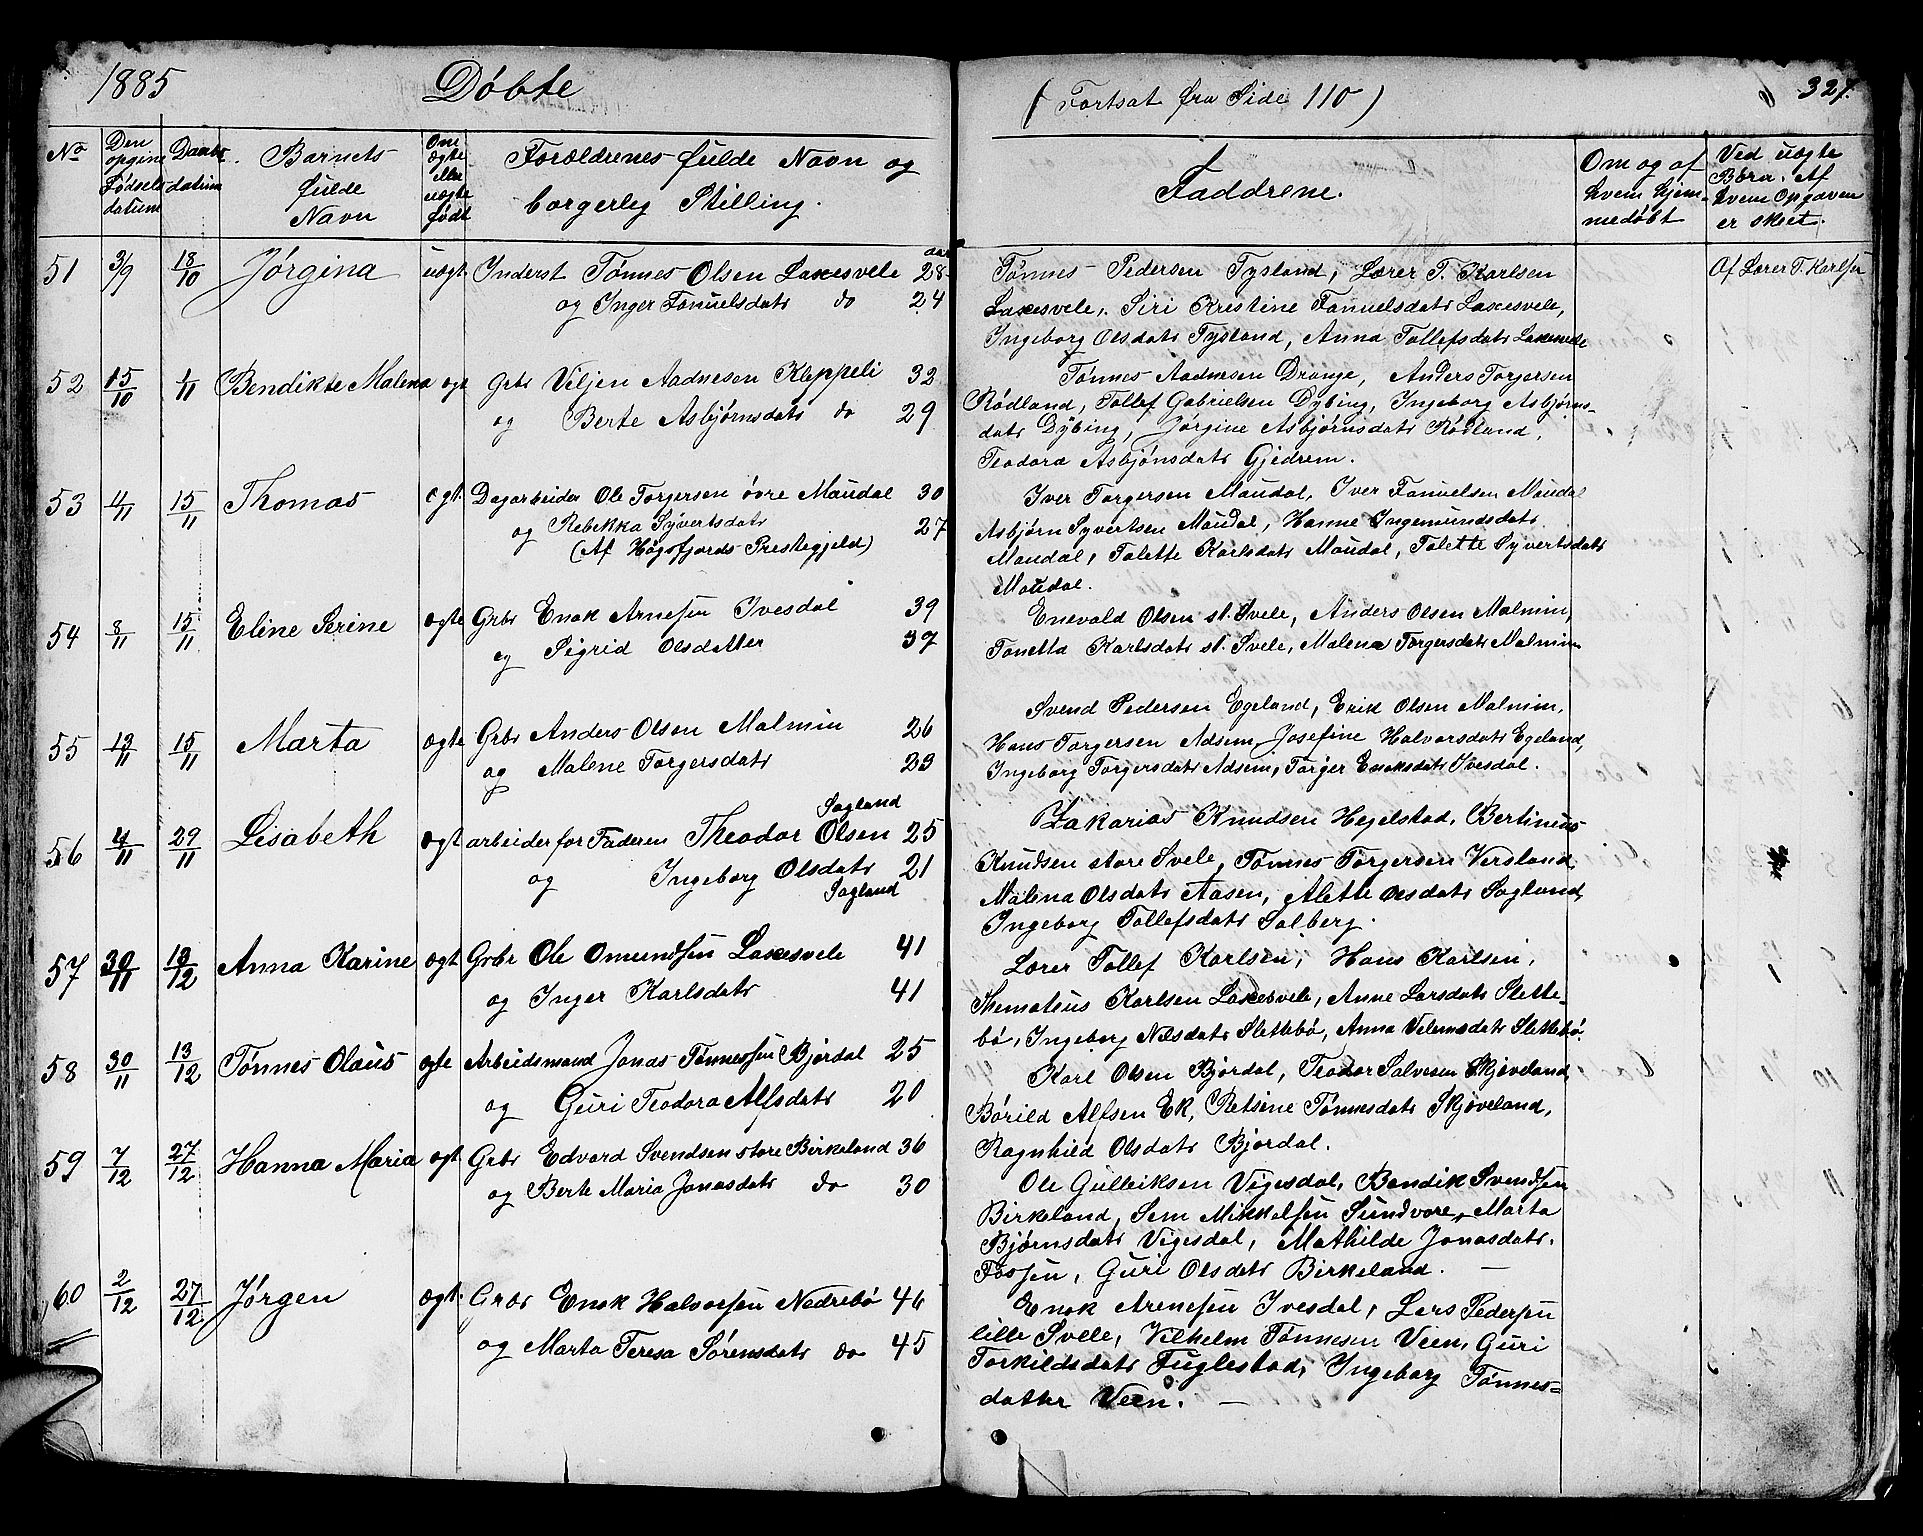 1885 Döbte
No
Den opgivne Fødsels datum
Daabs-datum
Barnets fulde Navn
Om ægte eller uægte født
Forældrenes fulde Navn og borgerlig Stilling.
51 3/9 18/10 Jørgina uægt. Inderst Tønnes Olsen Laxesvele 28 aar
og Inger Fanuelsdatr do 24
52 15/10 1/11 Bendikte Malena ægt Grbr Viljen Aadnesen Kleppeli 32
og Berte Asbjørnsdatr do 29
53 4/11 15/11 Thomas ægt. Dagarbeider Ole Torgersen övre Maudal 30
og Rebekka Syvertsdatr 27
(Af Høgsfjords Prestegjeld)
54 8/11 15/11 Eline Serine ægte Grbr Enok Arnesen Ivesdal 39
og Sigrid Olsdatter 37
55 13/11 15/11 Marta ægte Grbr Anders Olsen Malmin 26
og Malene Torgersdatr 23
56 4/11 29/11 Lisabeth ægt arbeider for Faderen Theodor Olsen Sagland 25
og Ingeborg Olsdatr 21
Sagland
57 30/11 13/12 Anna Karine ægt Grbr Ole Omundsen Laxesvele 41
og Inger Karlsdatr 41
58 30/11 13/12 Tønnes Olaus ægte Arbeidsmand Jonas Tønnessen Bjordal 25
og Guri Teodora Alfsdatr 20
59 7/12 27/12 Hanna Maria ægt Grbr Edvard Svendsen store Birkeland 36
og Berte Maria Jonasdatr do 30
60 2/12 27/12 Jørgen ægt. Grbr Enok Halvorsen Nedrebø 46
og Marta Teresa Sørensdatr do 45
(Fortsat fra Side 110) 327.
Faddrene.
Om og af hvem hjemmedøbt
Ved uægte Børn. Af hvem Opgaven er skeet.
Tønnes Pedersen Tysland, Lærer T. Karlsen Af Lærer T. Karlsen
Laxesvele, Siri Kristine Fanuelsdatr Laxesvele,
Ingeborg Olsdatr Tysland, Anna Tollefsdatr Laxesvele
Tønnes Aadnesen Drange, Anders Torgersen
Rødland, Tollef Gabrielsen Dybing, Ingeborg Asbjørns-
datr Dybing, Jørgine Asbjørnsdatr Rødland,
Teodora Asbjønsdatr Gjedrem.
Iver Torgersen Maudal, Iver Fanuelsen Maudal
Asbjørn Syvertsen Maudal, Hanne Ingemundsdatr
Maudal, Talette Karlsdatr Maudal, Talette Syvertsdatr
Maudal.
Enevald Olsen st. Svele, Anders Olsen Malmin,
Tonetta Karlsdatr st. Svele, Malena Torgersdatr Malmin
Svend Pedersen Egeland, Erik Olsen Malmin,
Hans Torgersen Adsem, Josefine Halvorsdatr Egeland,
Ingeborg Torgersdatr Adsem, Torger Enoksdatr Ivesdal.
Zakarias Knudsen Hegelstad, Bertinius
Knudsen store Svele, Tønnes Torgersen Verdland
Malena Olsdatr Aasen, Alette Olsdatr Sagland,
Ingeborg Tollefsdatr Solberg.
Lærer Tollef Karlsen, Hans Karlsen,
Themateus Karlsen Laxesvele, Anne Larsdatr Slette-
bø, Ingeborg Nilsdatr Slettebø, Anna Velemsdatr Slettebø.
Karl Olsen Bjordal, Teodor Salvesen Skjøveland,
Børild Alfsen Ek, Retsine Tønnesdatr Skjøveland,
Ragnhild Olsdatr Bjordal.
Ole Gulleiksen Vigesdal, Bendik Svendsen
Birkeland, Sem Mikkelsen Sundvore, Marta
Bjørnsdatr Vigesdal, Mathilde Jonasdatr
Fossen, Guri Olsdatr Birkeland. —
Enok Arnesen Ivesdal, Lars Pedersen
lille Svele, Vilhelm Tønnesen Veen, Guri
Torkildsdatr Fuglestad, Ingeborg Tønnes-
datter Veen. —